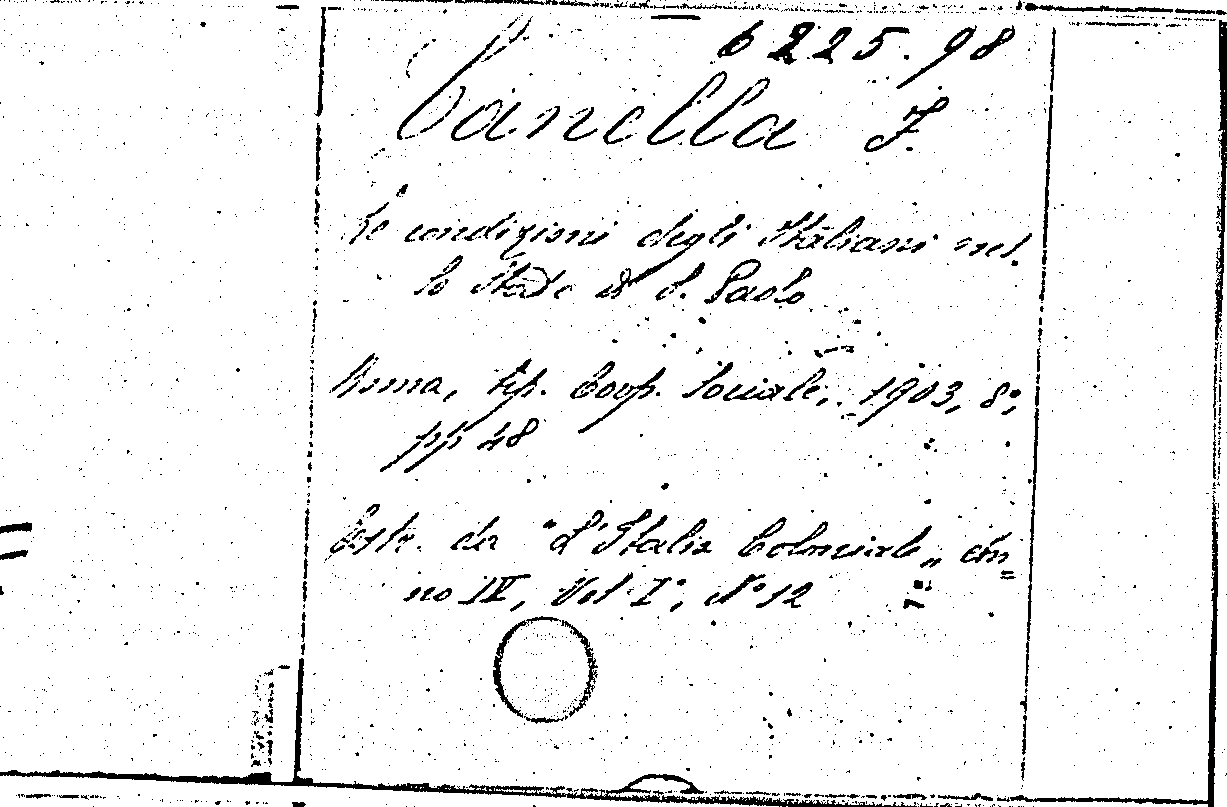 6225.98
Canella F.
Le condizioni degli Italiani nel-
lo Stato di S. Paolo
Roma, tip. Coop. Sociale, 1903, 8°,
pp 48
Estr. da "L'Italia Coloniale„ An=
no IV, Vol I°, N° 12